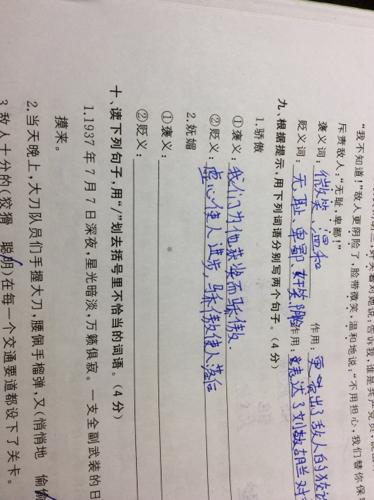 “我不知道！”敌人更阴险了，脸带微笑，温和地说：“不用担心，我们替你保
斥责敌人：“无耻、卑鄙！”
褒义词：微笑、温和 作用：更突出了敌人的
贬义词：无耻、卑鄙、奸笑 作用：表达了刘胡兰对
九、根据提示，用下列词语分别写两个句子。（4分）
1.骄傲
①褒义：我们为他获奖而骄傲。
②贬义：虚心使人进步，骄傲使人落后
2.妩媚
①褒义：
②贬义：
十、读下列句子，用“/”划去括号里不恰当的词语。（4分）
1.1937年7月7日深夜，星光暗淡，万籁俱寂。一支全副武装的日
摸来。
2.当天晚上，大刀队员们手握大刀，腰佩手榴弹，又（悄悄地 偷
3.敌人十分的（狡猾 聪明）在每一个交通要道都设下了关卡。